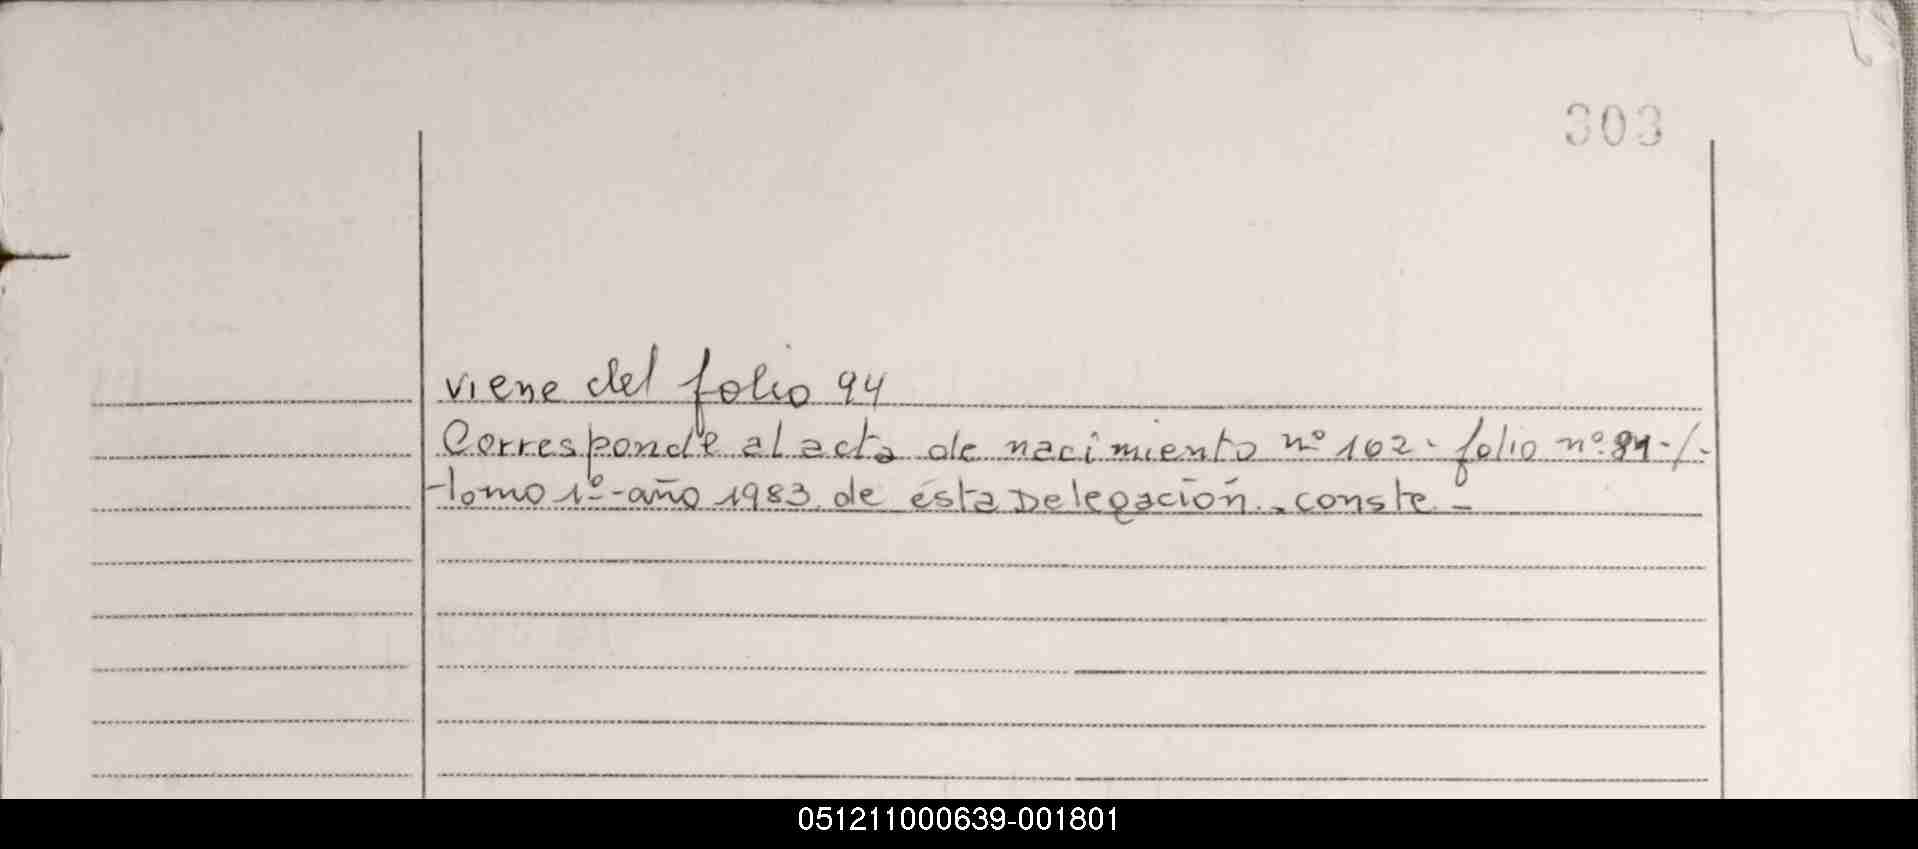 303
viene del folio 94
Corresponde al acta de nacimiento nº 102 - folio nº 94 -/-
tomo 1º - año 1983. de ésta Delegación. conste -
051211000639-001801